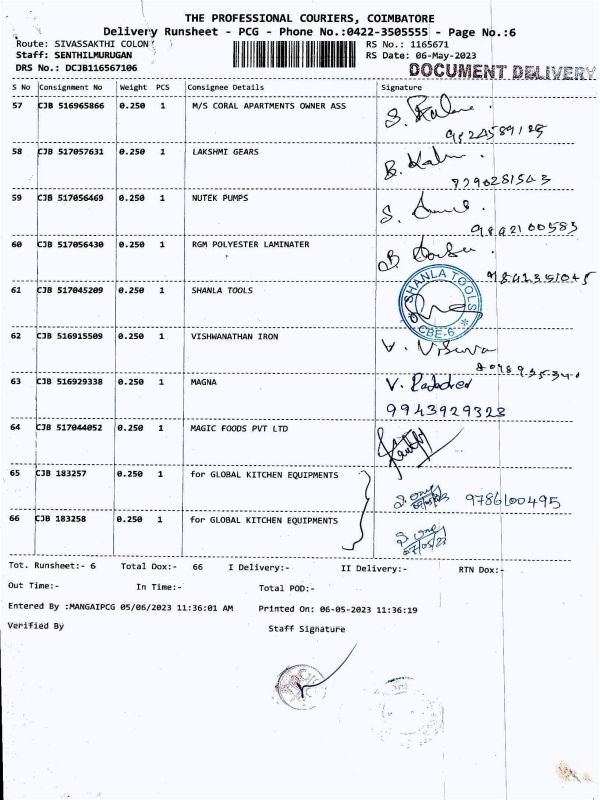 THE PROFESSIONAL COURIERS, COIMBATORE
Delivery Runsheet - PCG - Phone No.:0422-3505555 - Page No.:6
Route: SIVASSAKTHI COLON
RS No.: 1165671
Staff: SENTHILMURUGAN
RS Date: 06-May-2023
DRS No.: DCJB116567106
DOCUMENT DELIVERY
S No Consignment No Weight PCS Consignee Details Signature
57 CJB 516965866 0.250 1 M/S CORAL APARTMENTS OWNER ASS
58 CJB 517057631 0.250 1 LAKSHMI GEARS
59 CJB 517056469 0.250 1 NUTEK PUMPS
9892100583
60 CJB 517056430 0.250 1 RGM POLYESTER LAMINATER
61 CJB 517045209 0.250 1 SHANLA TOOLS
SHANLA TOOLS
CBE-6
62 CJB 516915509 0.250 1 VISHWANATHAN IRON
63 CJB 516929338 0.250 1 MAGNA
9943929328
64 CJB 517044052 0.250 1 MAGIC FOODS PVT LTD
65 CJB 183257 0.250 1 for GLOBAL KITCHEN EQUIPMENTS
9786100495
66 CJB 183258 0.250 1 for GLOBAL KITCHEN EQUIPMENTS
07/05/23
Tot. Runsheet:- 6 Total Dox:- 66 I Delivery:- II Delivery:- RTN Dox:-
Out Time:- In Time:- Total POD:-
Entered By :MANGAIPCG 05/06/2023 11:36:01 AM Printed On: 06-05-2023 11:36:19
Verified By Staff Signature